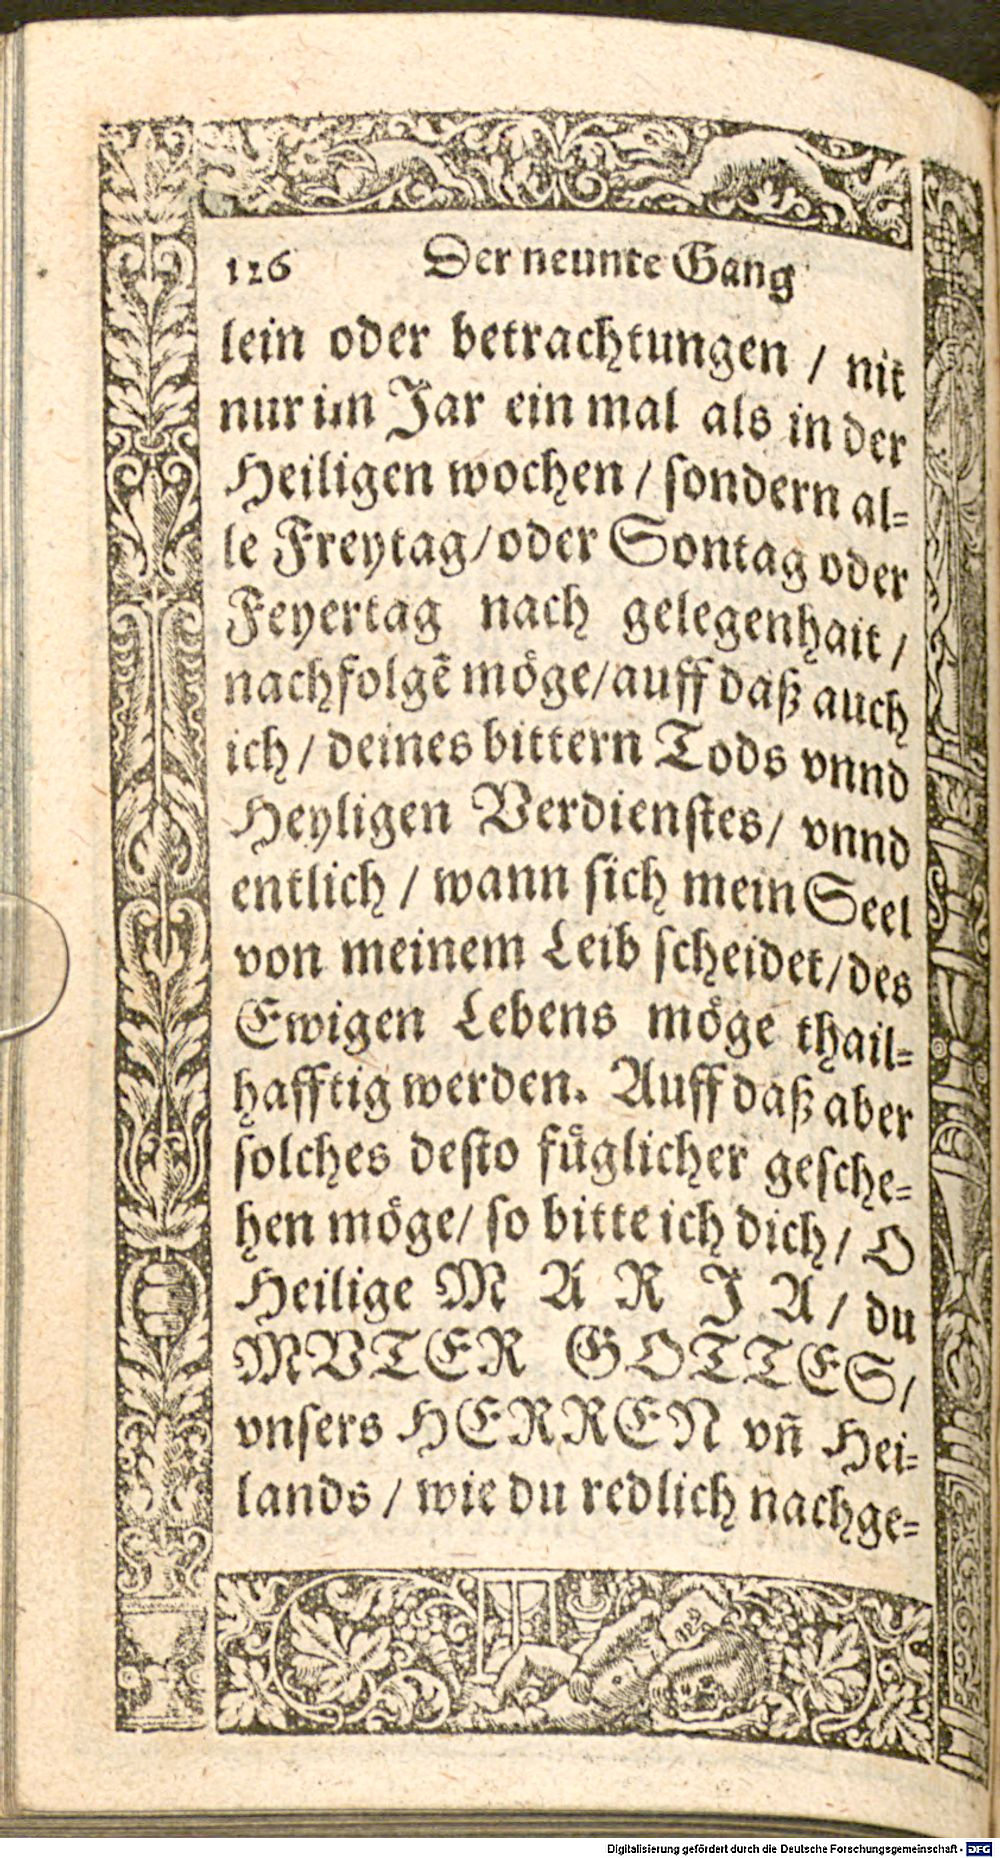 126 Der neunte Gang
lein oder betrachtungen / nit
nur im Jar ein mal als in der
Heiligen wochen / sondern al-
le Freytag/oder Sontag oder
Feyertag nach gelegenhait /
nachfolgẽ möge/auff daß auch
ich / deines bittern Tods vnnd
Heyligen Verdienstes/ vnnd
entlich / wann sich mein Seel
von meinem Leib scheidet/des
Ewigen Lebens möge thail-
hafftig werden. Auff daß aber
solches desto füglicher gesche-
hen möge/ so bitte ich dich/ O
Heilige M A R I A/ du
MVTER GOTTES/
vnsers HERREN vñ Hei-
lands / wie du redlich nachge-
Digitalisierung gefördert durch die Deutsche Forschungsgemeinschaft - DFG